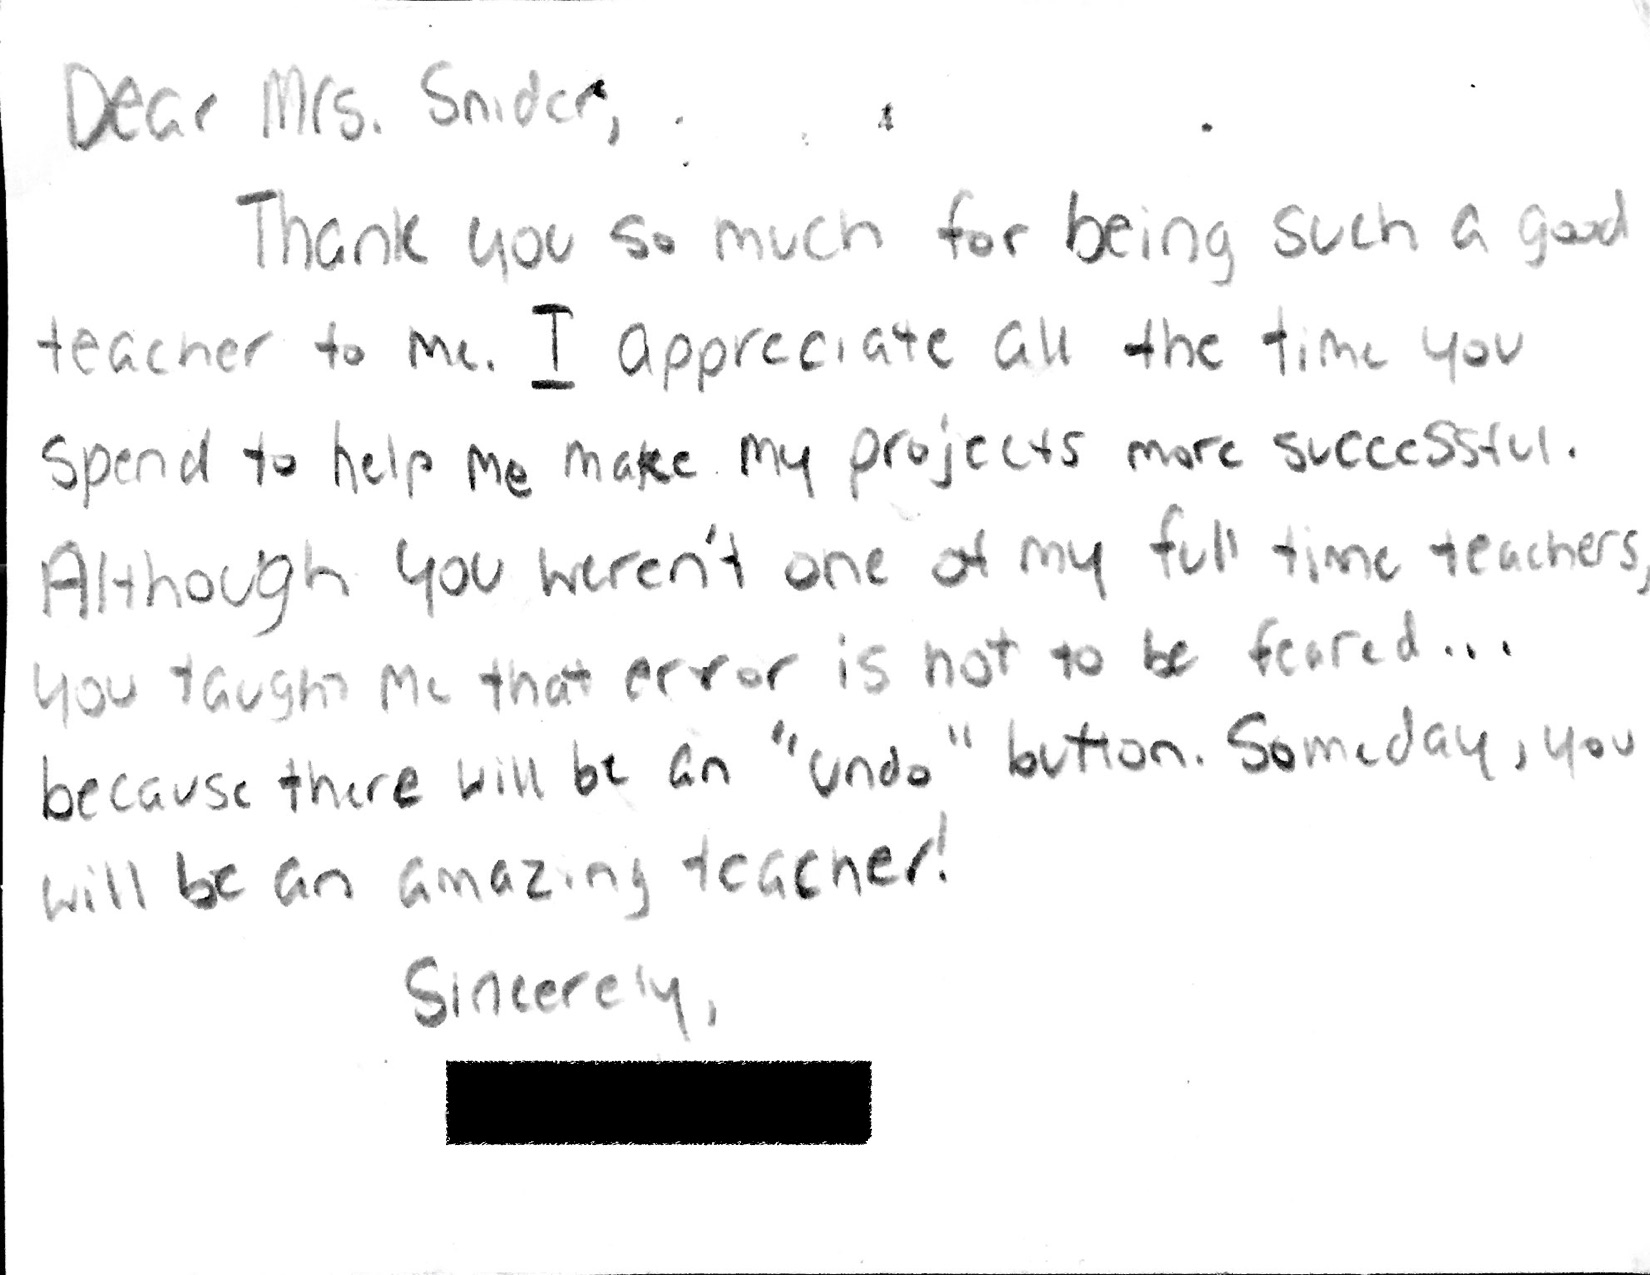 Dear Mrs. Snider,
Thank you so much for being such a good
teacher to me. I appreciate all the time you
spend to help me make my projects more successful.
Although you weren't one of my full time teachers,
you taught me that error is not to be feared...
because there will be an "undo" button. Someday, you
will be an amazing teacher!
Sincerely,